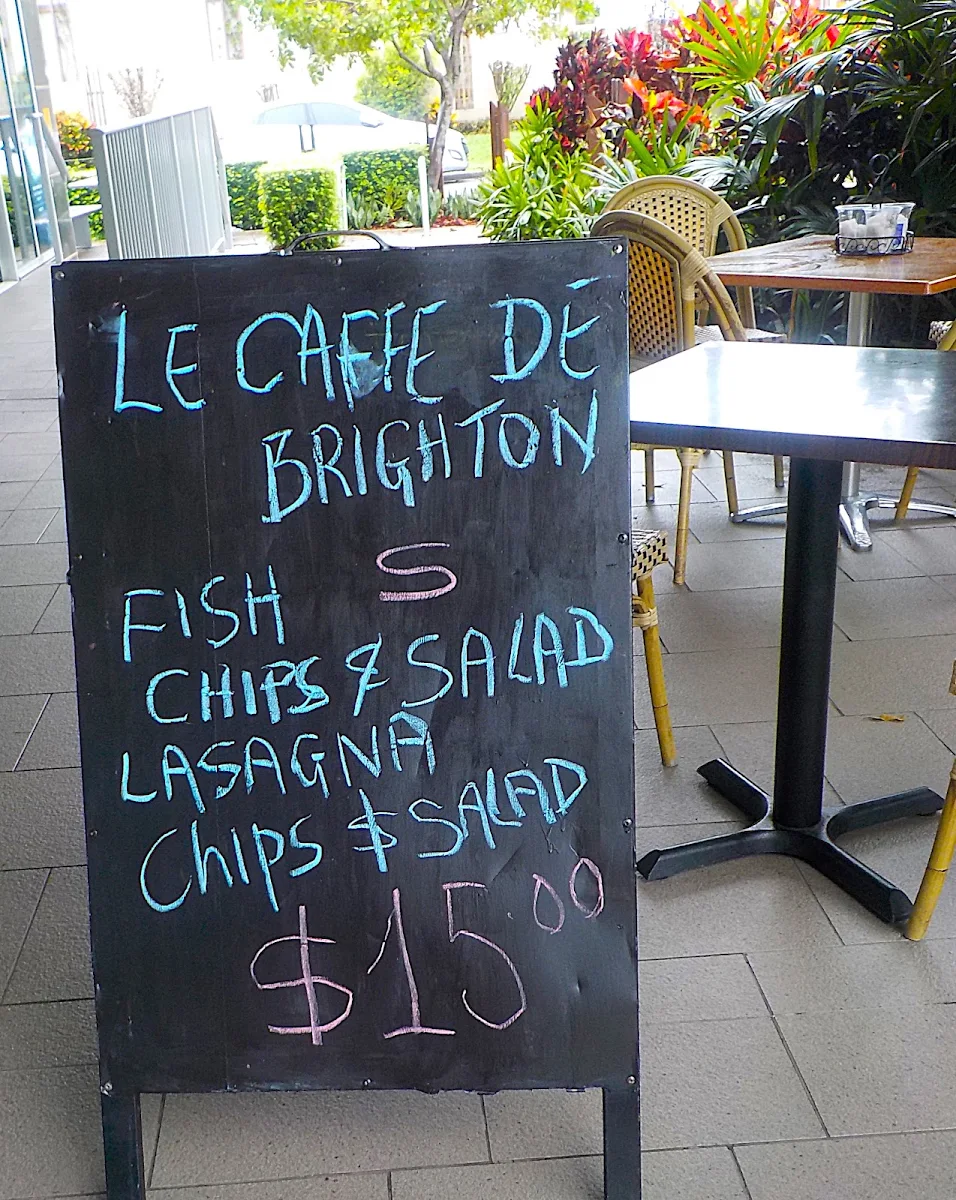 LE CAFFE DÉ
BRIGHTON
S
FISH
CHIPS & SALAD
LASAGNA
ChIPS $ SALAD
$15.00